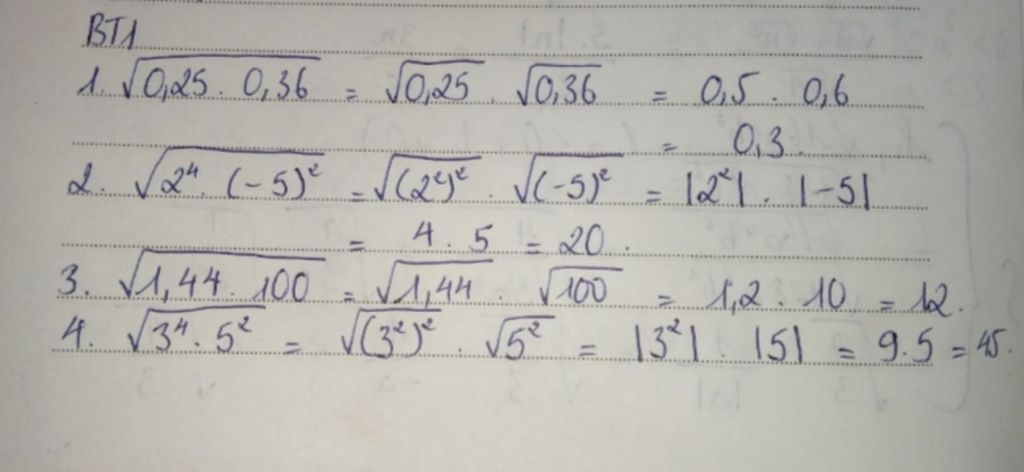 BT1
1. √0,25 . 0,36 = √0,25 . √0,36 = 0,5 . 0,6
= 0,3.
2. √2⁴ . (-5)² = √(2²)² . √(-5)² = |2²| . |-5|
= 4 . 5 = 20.
3. √1,44 . 100 = √1,44 . √100 = 1,2 . 10 = 12.
4. √3⁴ . 5² = √(3²)² . √5² = |3²| . |5| = 9.5 = 45.